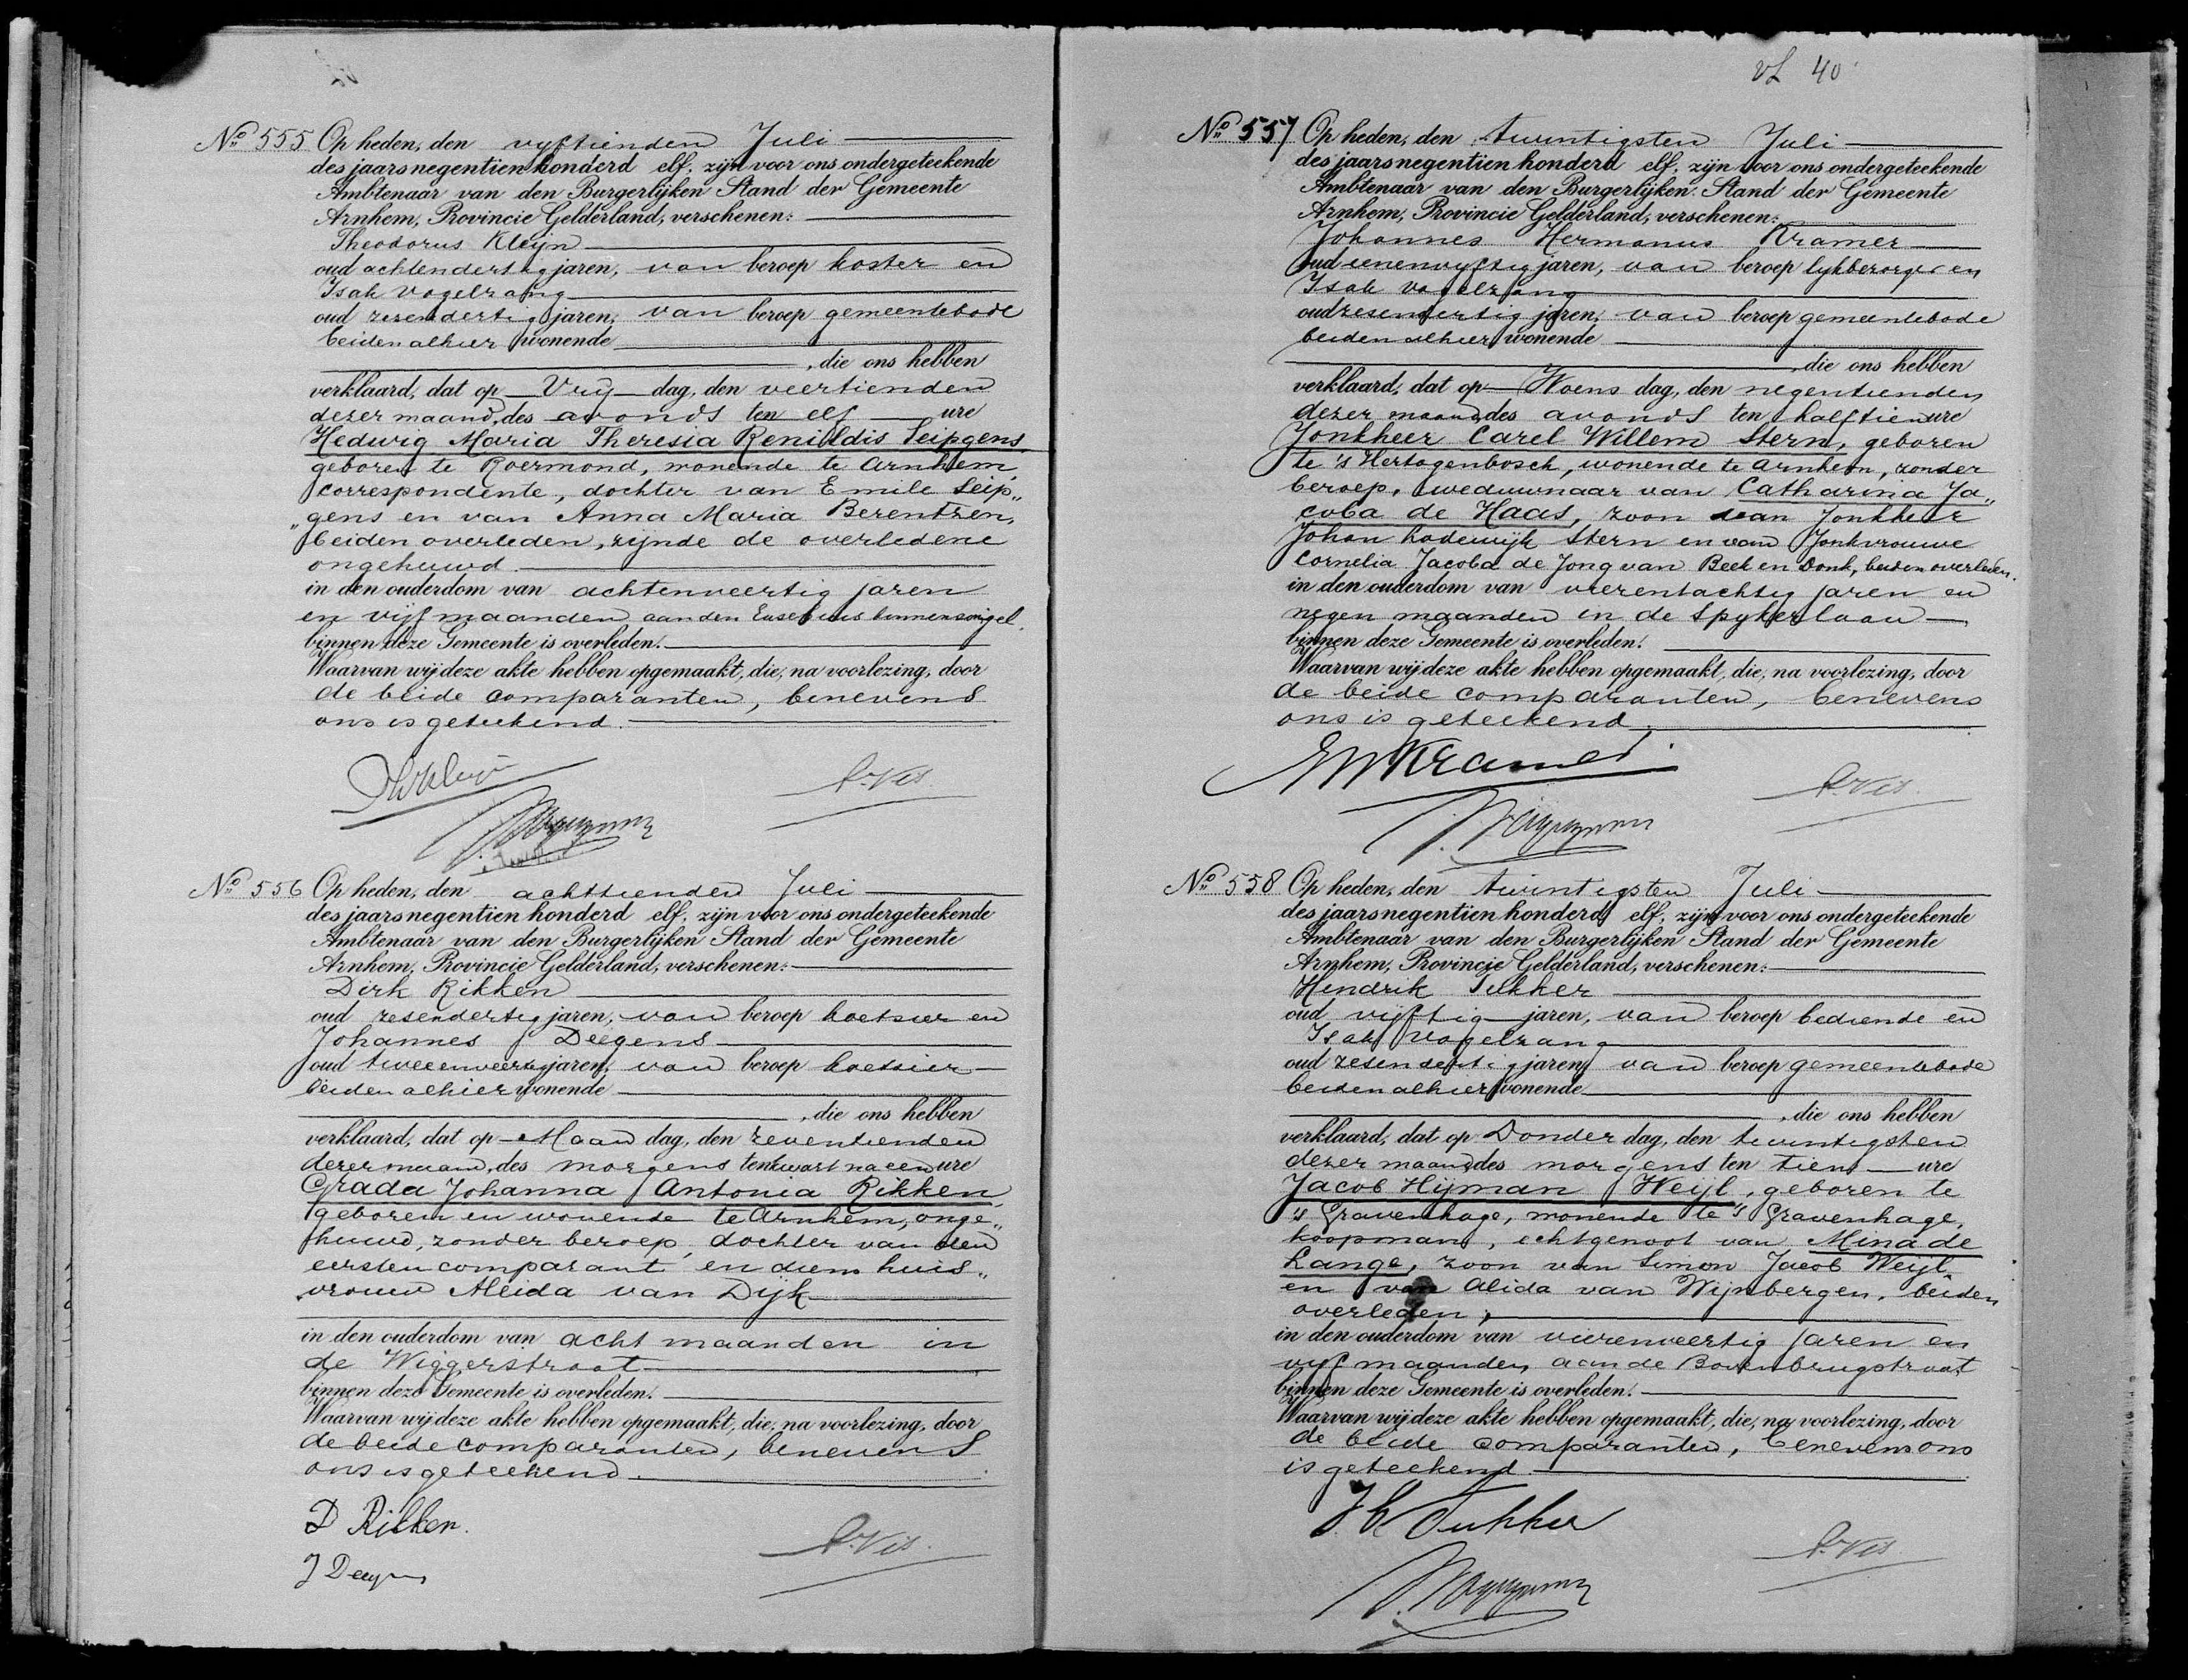 No 555 Op heden, den vyftienden Juli
des jaars negentien honderd elf, zijn voor ons ondergeteekende
Ambtenaar van den Burgerlijken Stand der Gemeente
Arnhem, Provincie Gelderland, verschenen:
Theodorus Kleijn
oud achtendertig jaren, van beroep koster en
Isak Vogelzang
oud zesendertig jaren, van beroep gemeentebode
beiden alhier wonende
, die ons hebben
verklaard, dat op Vrij dag, den veertienden
dezer maand, des avonds ten elf ure
Hedwig Maria Theresia Renildis Seipgens,
geboren te Roermond, wonende te Arnhem,
correspondente, dochter van Emile Seip„
„gens en van Anna Maria Berentzen,
beiden overleden, zijnde de overledene
ongehuwd.
in den ouderdom van achtenveertig jaren
en vijf maanden aan den Eusebius binnensingel.
binnen deze Gemeente is overleden.
Waarvan wij deze akte hebben opgemaakt, die, na voorlezing, door
de beide comparanten, benevens
ons is geteekend.
A. Vis
No 556 Op heden, den achttienden Juli
des jaars negentien honderd elf, zijn voor ons ondergeteekende
Ambtenaar van den Burgerlijken Stand der Gemeente
Arnhem, Provincie Gelderland, verschenen:
Dirk Rikken
oud zesendertig jaren, van beroep koetsier en
Johannes Deegens
oud tweeenveertig jaren, van beroep koetsier
beiden alhier wonende
, die ons hebben
verklaard, dat op Maan dag, den zeventienden
dezer maand, des morgens ten kwart na een ure
Grada Johanna Antonia Rikken,
geboren en wonende te Arnhem, onge„
huwd, zonder beroep, dochter van den
eersten comparant en diens huis„
vrouw Aleida van Dijk
in den ouderdom van acht maanden in
de Wiggerstraat
binnen deze Gemeente is overleden.
Waarvan wij deze akte hebben opgemaakt, die, na voorlezing, door
de beide comparanten, benevens
ons is geteekend.
D Rikken.
A. Vis.
J Deegens
40
No 557 Op heden, den twintigsten Juli
des jaars negentien honderd elf, zijn voor ons ondergeteekende
Ambtenaar van den Burgerlijken Stand der Gemeente
Arnhem, Provincie Gelderland, verschenen:
Johannes Hermanus Kramer
oud eenenvyftig jaren, van beroep lykbezorger en
Isak Vogelzang
oud zesendertig jaren, van beroep gemeentebode
beiden alhier wonende
, die ons hebben
verklaard, dat op Woens dag, den negentienden
dezer maand des avonds ten half tien ure
Jonkheer Carel Willem Stern, geboren
te 's Hertogenbosch, wonende te Arnhem, zonder
beroep, weduwnaar van Catharina Ja„
coba de Haas, zoon van Jonkheer
Johan Lodewijk Stern en van Jonkvrouwe
Cornelia Jacoba de Jong van Beek en Donk, beiden overleden.
in den ouderdom van vierentachtig jaren en
negen maanden in de Spykerlaan
binnen deze Gemeente is overleden.
Waarvan wij deze akte hebben opgemaakt, die, na voorlezing, door
de beide comparanten, benevens
ons is geteekend.
Kramer
A. Vis.
No 558 Op heden, den twintigsten Juli
des jaars negentien honderd elf, zijn voor ons ondergeteekende
Ambtenaar van den Burgerlijken Stand der Gemeente
Arnhem, Provincie Gelderland, verschenen:
Hendrik Tukker
oud vijftig jaren, van beroep bediende en
Isak Vogelzang
oud zesendertig jaren, van beroep gemeentebode
beiden alhier wonende
, die ons hebben
verklaard, dat op Donder dag, den twintigsten
dezer maand des morgens ten tien ure
Jacob Hijman Weijl, geboren te
's Gravenhage, wonende te 's Gravenhage,
koopman, echtgenoot van Mina de
Lange, zoon van Simon Jacob Weijl
en van Alida van Wijnbergen, beiden
overleden,
in den ouderdom van vierenveertig jaren en
vijf maanden aan de Bovenbrugstraat
binnen deze Gemeente is overleden.
Waarvan wij deze akte hebben opgemaakt, die, na voorlezing, door
de beide comparanten, benevens ons
is geteekend.
H Tukker
A. Vis